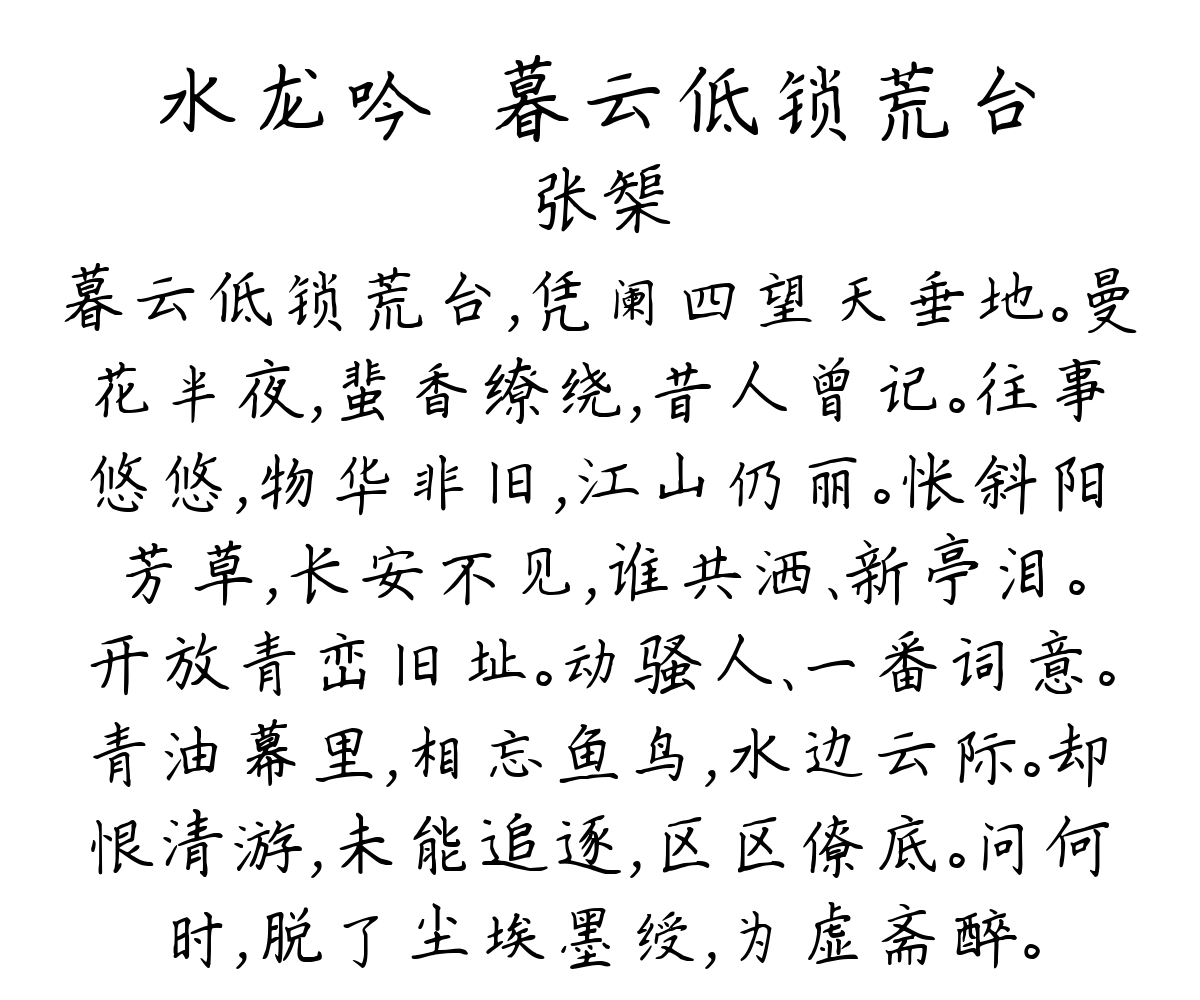 水龙吟 暮云低锁荒台
张榘
暮云低锁荒台,凭阑四望天垂地。曼
花半夜,蜚香缭绕,昔人曾记。往事
悠悠,物华非旧,江山仍丽。怅斜阳
芳草,长安不见,谁共洒、新亭泪。
开放青峦旧址。动骚人、一番词意。
青油幕里,相忘鱼鸟,水边云际。却
恨清游,未能追逐,区区僚底。问何
时,脱了尘埃墨绶,为虚斋醉。